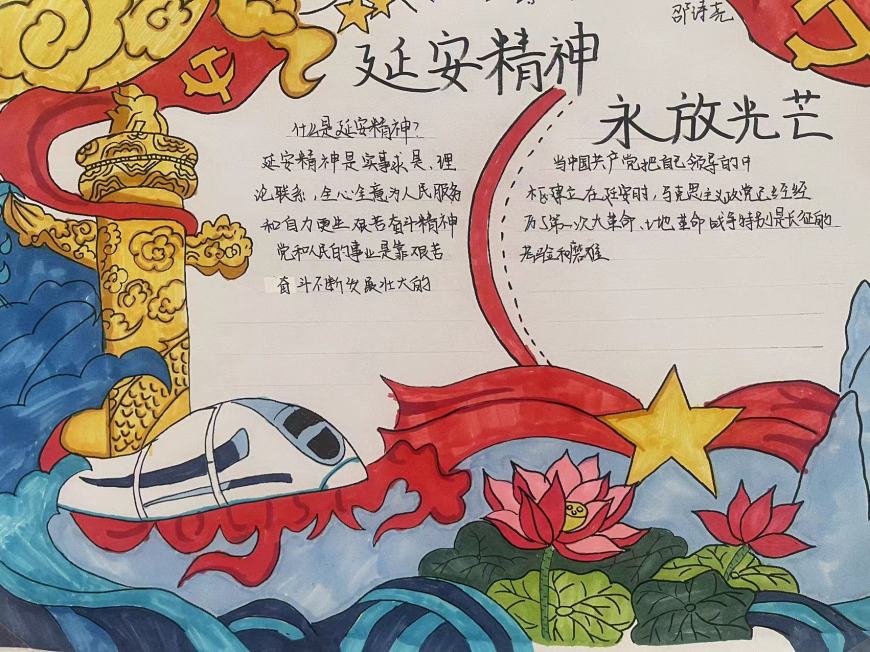 邵诗尧
延安精神
永放光芒
什么是延安精神?
延安精神是实事求是、理
论联系,全心全意为人民服务
和自力更生艰苦奋斗精神
党和人民的事业是靠艰苦
奋斗不断发展壮大的
当中国共产党把自己领导的中
建立在延安时,马克思主义政党已经经
历了第一次大革命、土地革命战争特别是长征的
考验和磨难